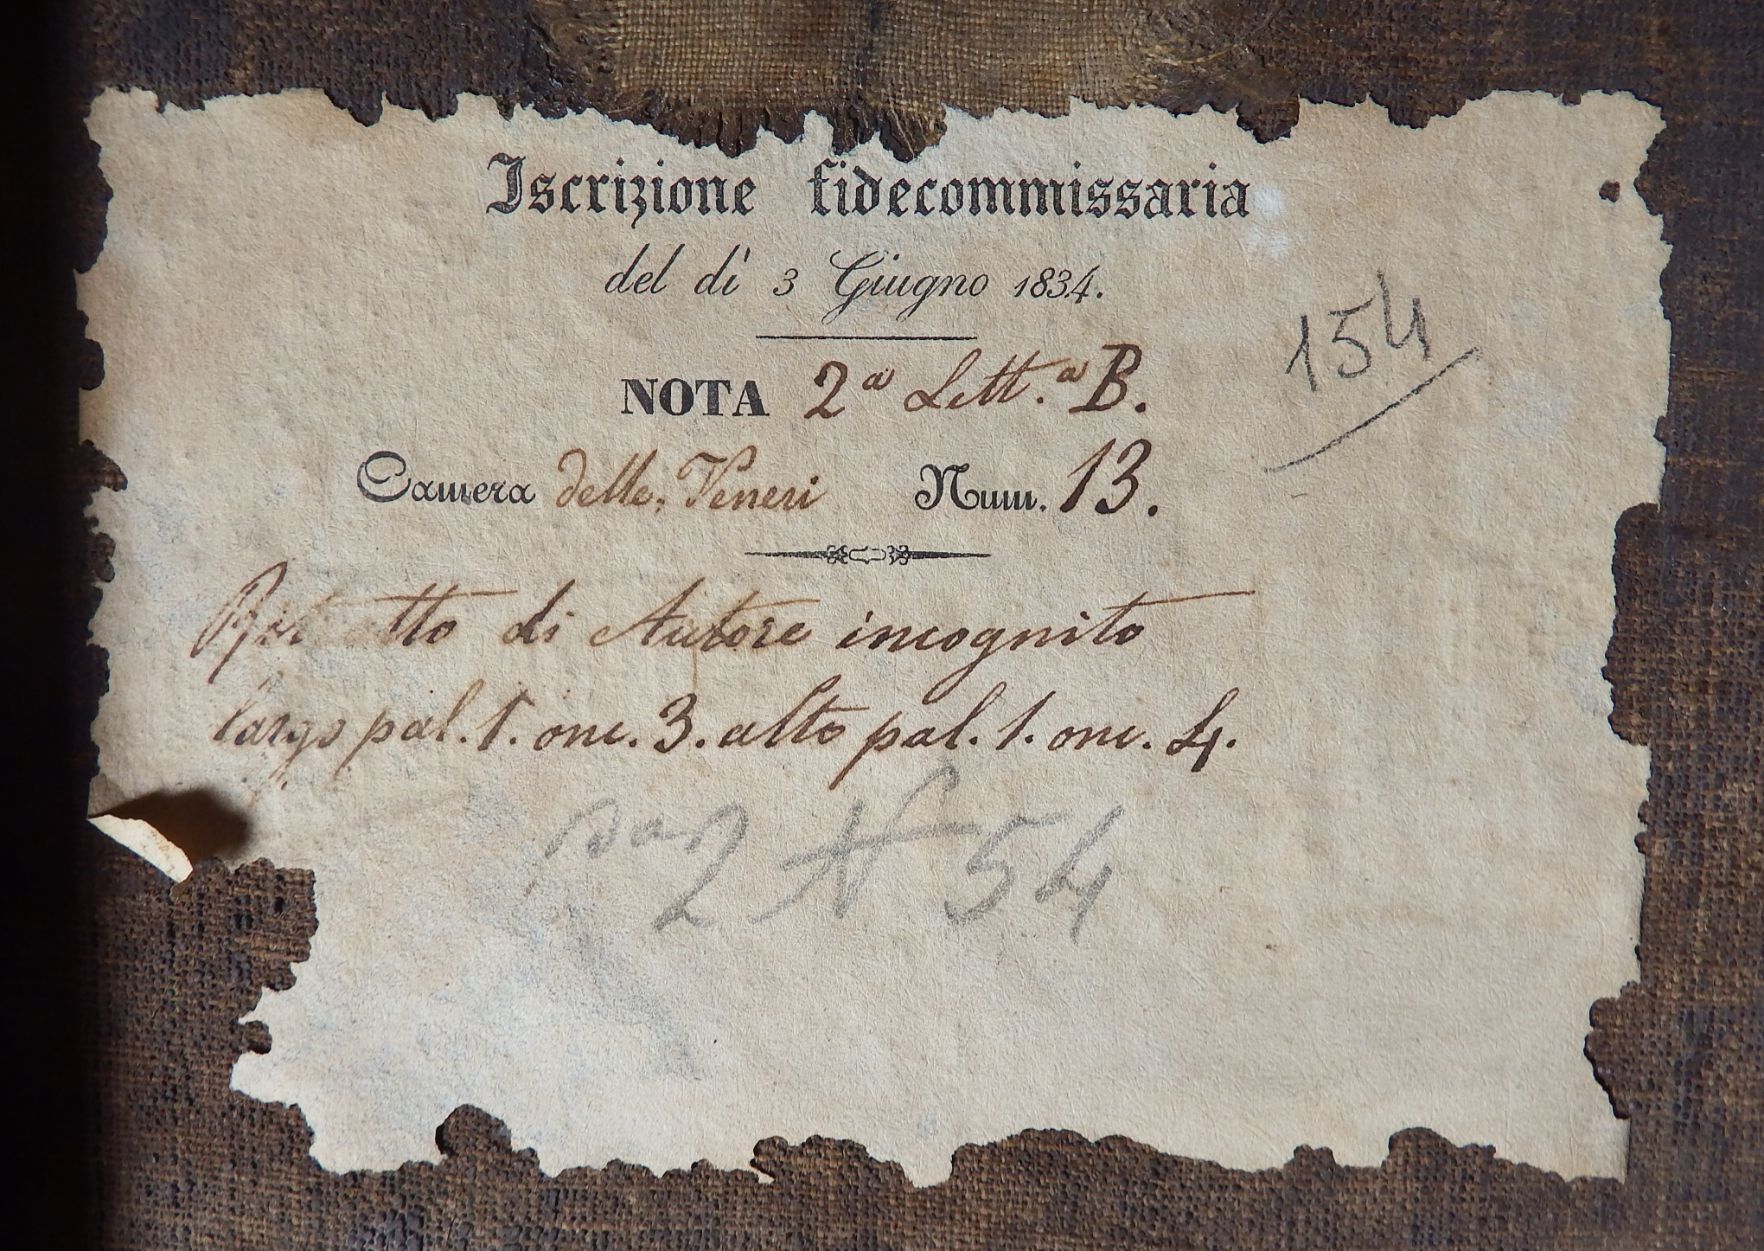 Iscrizione fidecommissaria
del dì 3 Giugno 1834.
154
NOTA 2a Lett.a B.
Camera delle Veneri Num. 13.
Ritratto di Autore incognito
largo pal. 1. onc. 3. alto pal. 1. onc. 4.
2 N 54